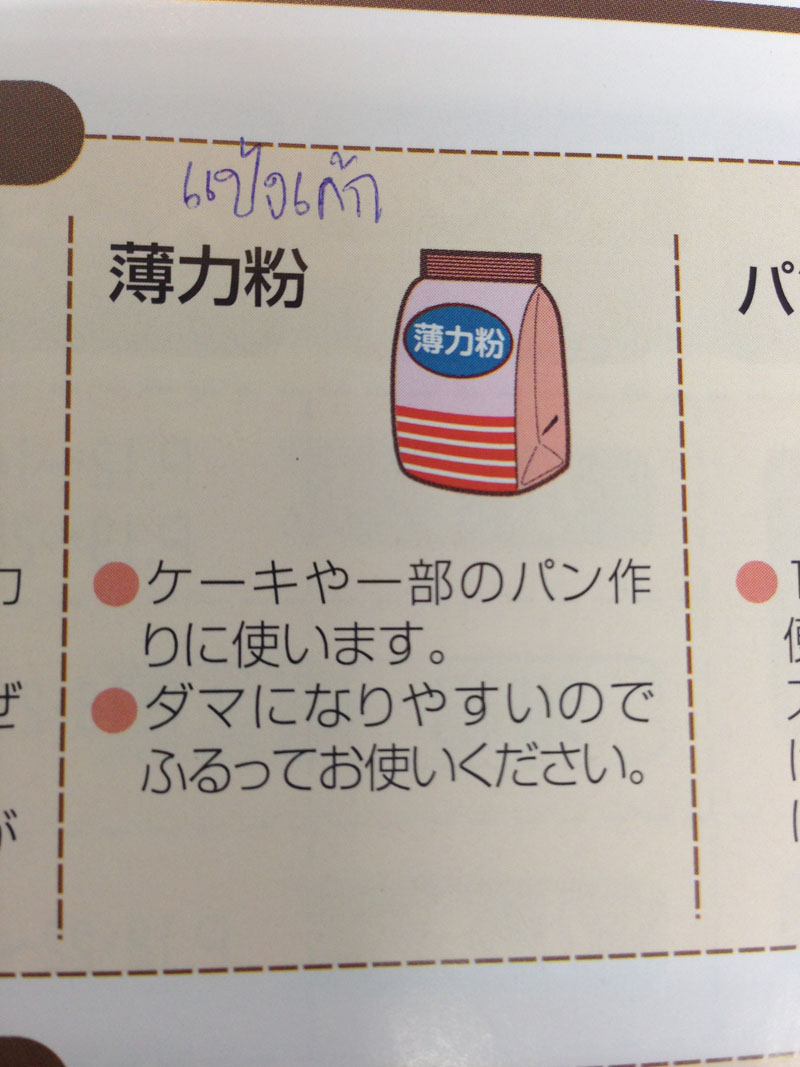 แป้งเค้ก
薄力粉
薄力粉
●ケーキや一部のパン作
りに使います。
●ダマになりやすいので
ふるってお使いください。
パ
力
ぜ
が